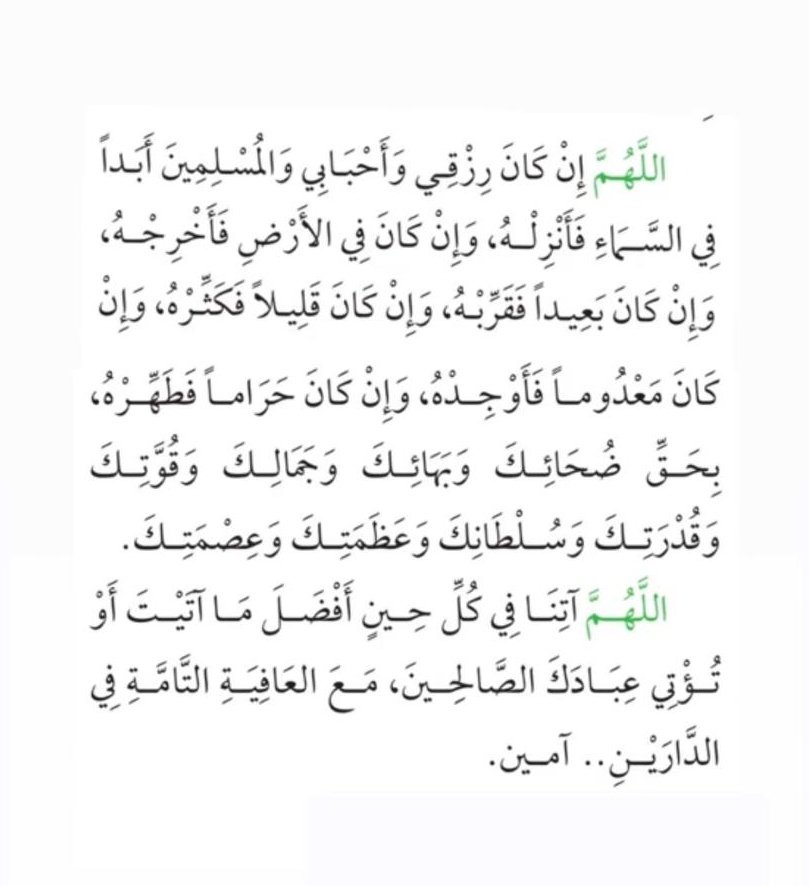 اللَّهُمَّ إِنْ كَانَ رِزْقِي وَأَحْبَابِي وَالْمُسْلِمِينَ أَبَداً
فِي السَّمَاءِ فَأَنْزِلْهُ، وَإِنْ كَانَ فِي الأَرْضِ فَأَخْرِجْهُ،
وَإِنْ كَانَ بَعِيداً فَقَرِّبْهُ، وَإِنْ كَانَ قَلِيلاً فَكَثِّرْهُ، وَإِنْ
كَانَ مَعْدُوماً فَأَوْجِدْهُ، وَإِنْ كَانَ حَرَاماً فَطَهِّرْهُ،
بِحَقِّ ضُحَائِكَ وَبَهَائِكَ وَجَمَالِكَ وَقُوَّتِكَ
وَقُدْرَتِكَ وَسُلْطَانِكَ وَعَظَمَتِكَ وَعِصْمَتِكَ.
اللَّهُمَّ آتِنَا فِي كُلِّ حِينٍ أَفْضَلَ مَا آتَيْتَ أَوْ
تُؤْتِي عِبَادَكَ الصَّالِحِينَ، مَعَ العَافِيَةِ التَّامَّةِ فِي
الدَّارَيْنِ.. آمين.